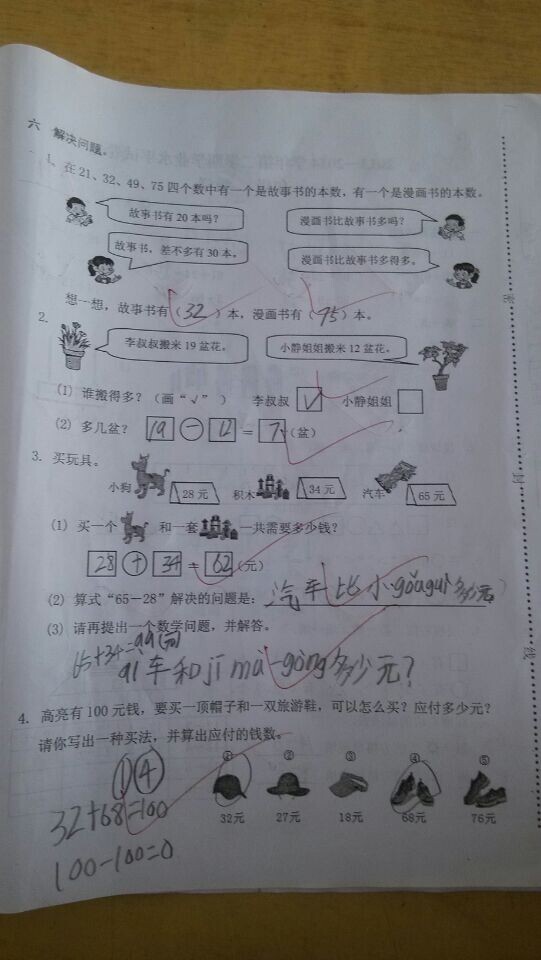 六 解决问题。
1、在21、32、49、75四个数中有一个是故事书的本数，有一个是漫画书的本数。
故事书有20本吗？ 漫画书比故事书多吗？
故事书，差不多有30本。 漫画书比故事书多得多。
想一想，故事书有（32）本，漫画书有（75）本。
2.
李叔叔搬来19盆花。 小静姐姐搬来12盆花。
（1）谁搬得多？（画“√”） 李叔叔 √ 小静姐姐
（2）多几盆？ 19 － 12 ＝ 7（盆）
3. 买玩具。
小狗 28元 积木 34元 汽车 65元
（1）买一个 和一套 一共需要多少钱？
28 ＋ 34 ＝ 62（元）
（2）算式“65－28”解决的问题是：汽车比小gǒuguì多少元
（3）请再提出一个数学问题，并解答。
65+34=99(元)
qì车和jī mù一gòng多少元？
4. 高亮有100元钱，要买一顶帽子和一双旅游鞋，可以怎么买？应付多少元？
请你写出一种买法，并算出应付的钱数。
①④
① ② ③ ④ ⑤
32元 27元 18元 68元 76元
32+68=100
100-100=0